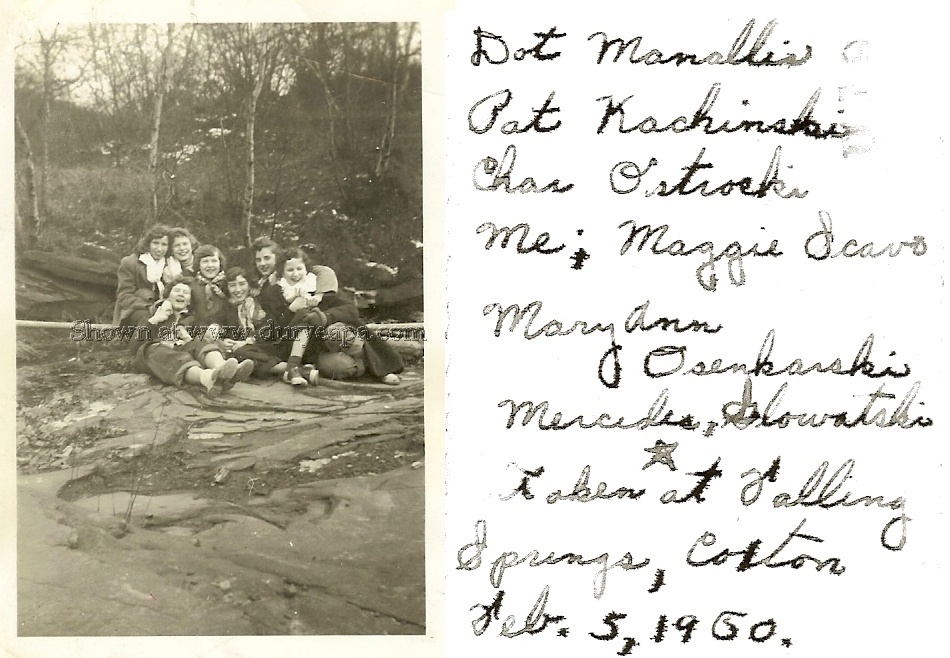 Shown at www.duryeapa.com
Dot Manallis
Pat Kachinski
Char O'strocki
Me; Maggie Scavo
Mary Ann
Osenkarski
Mercedes, Slowatski
Taken at Falling
Springs, Coxton
Feb. 5, 1950.